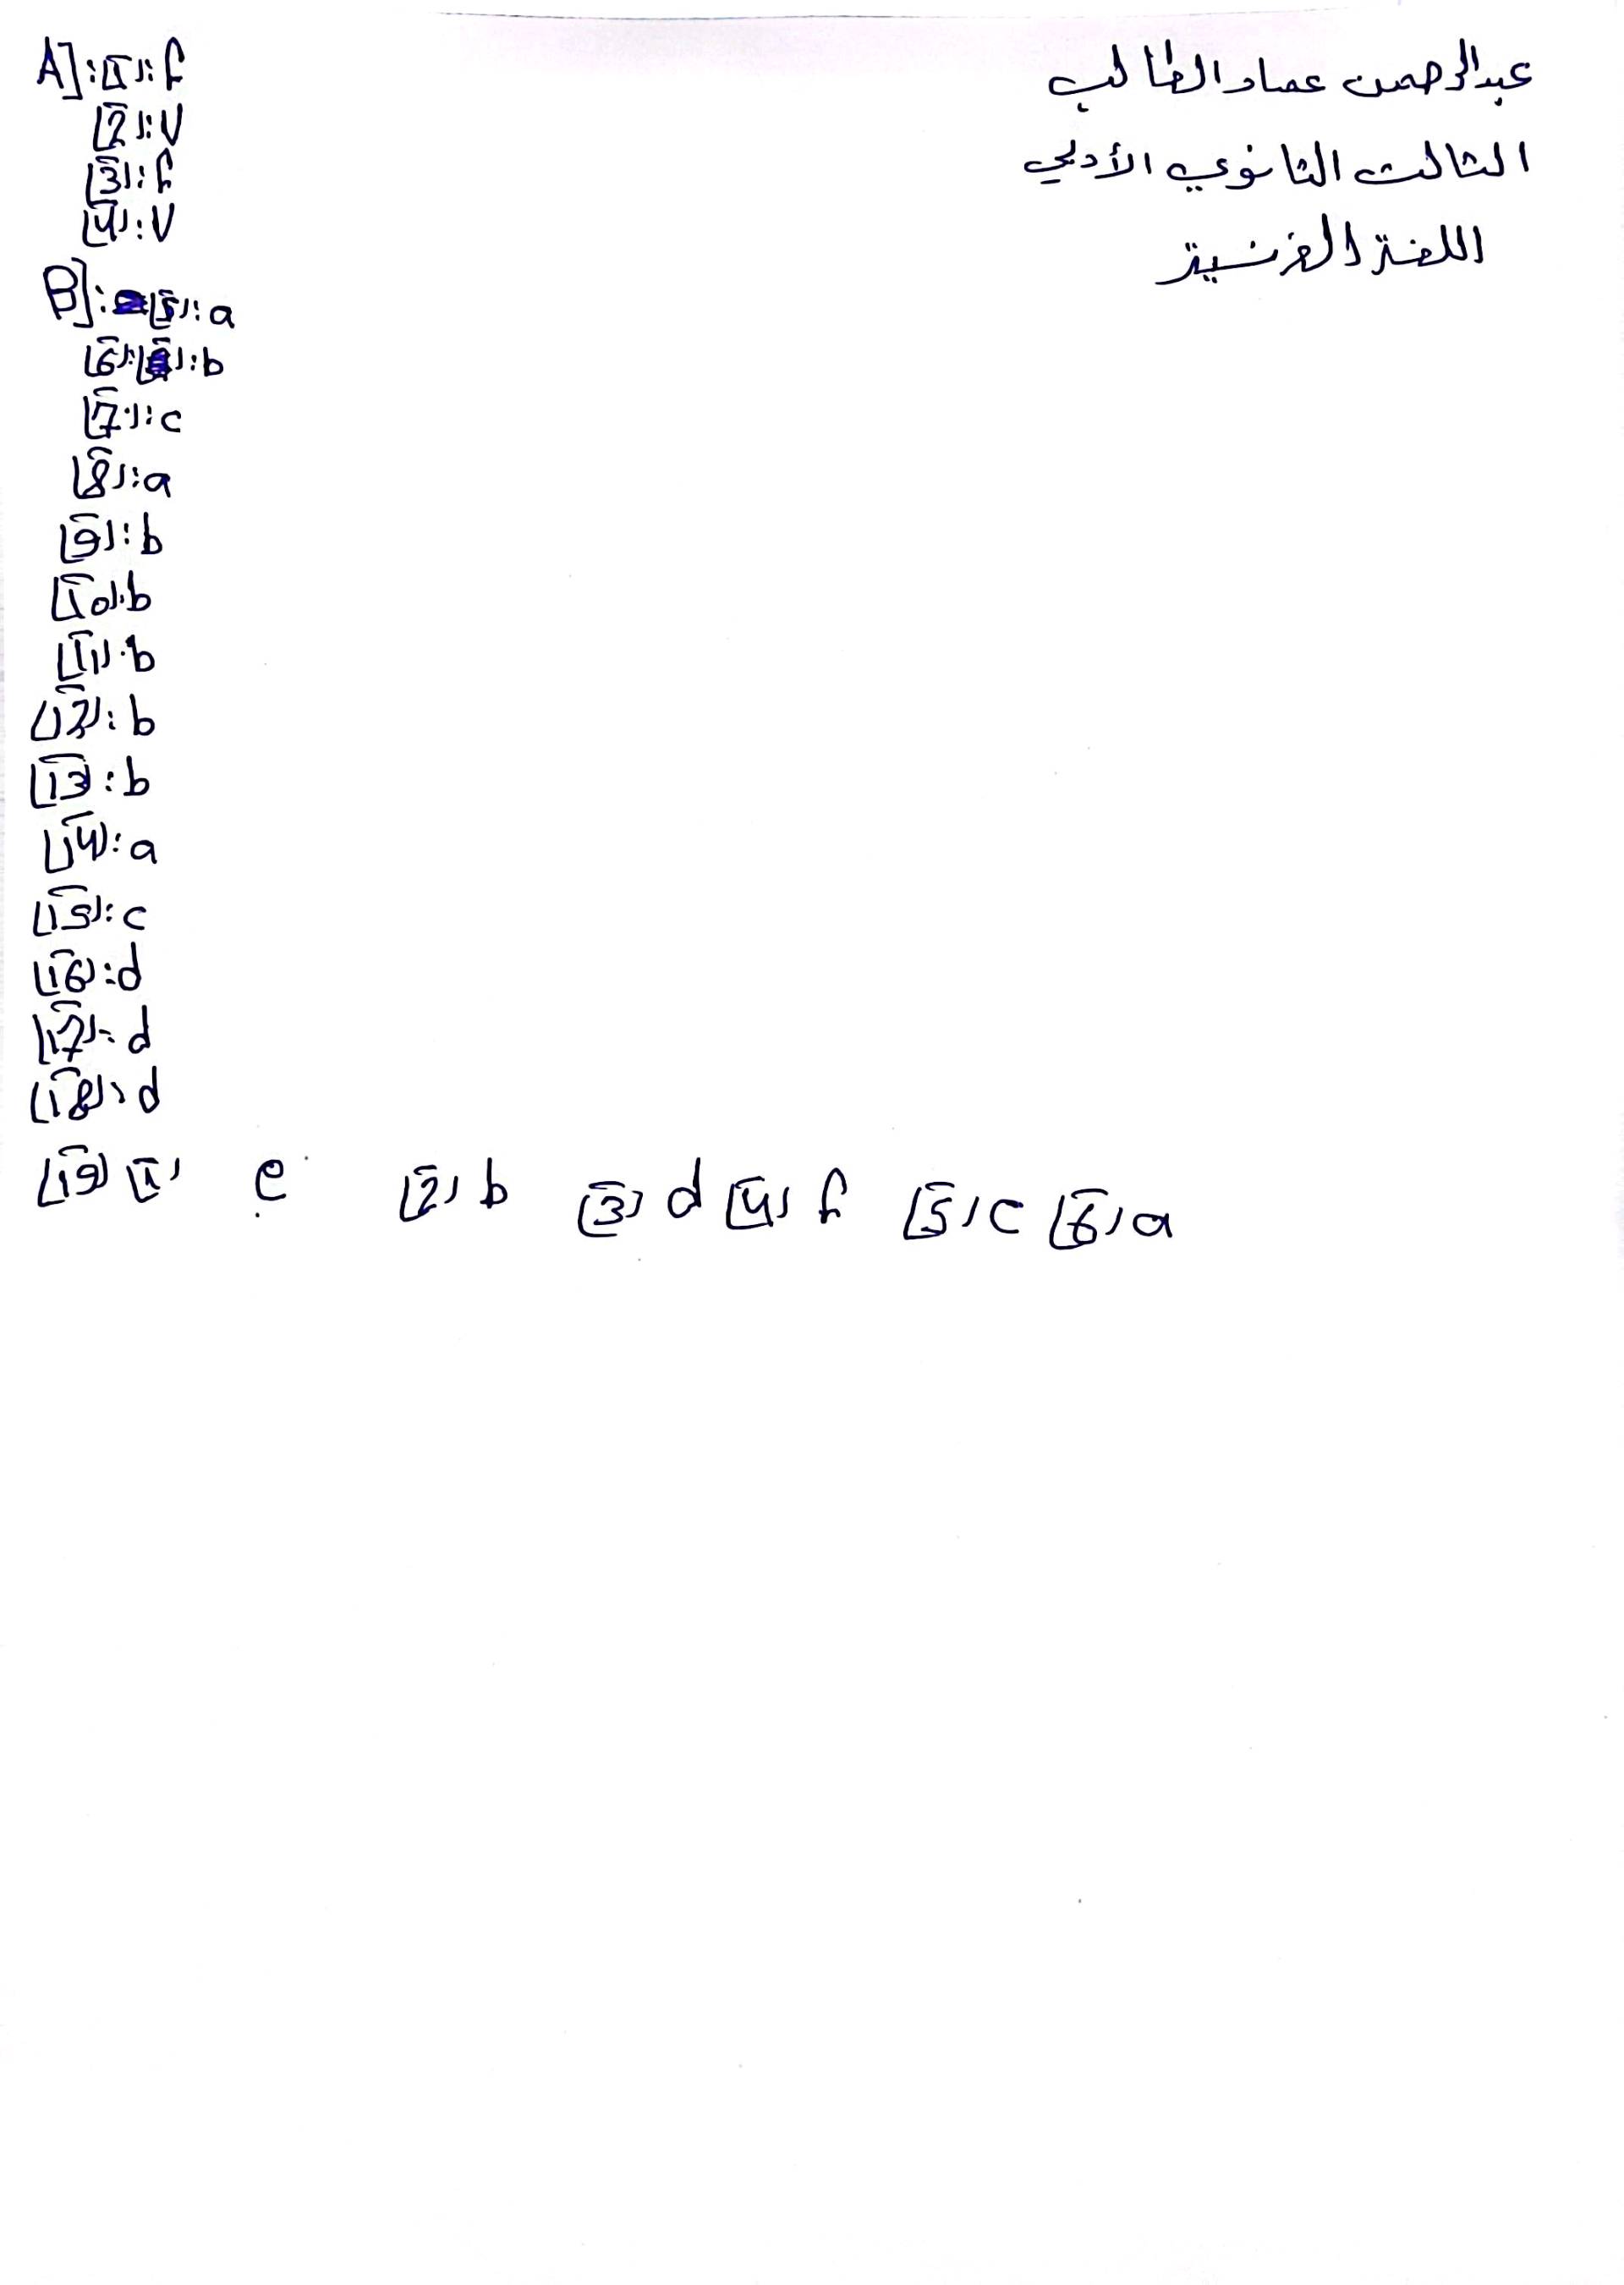 عبدالرحمن عماد الطالب
الثالث الثانوي الأدبي
اللغة الفرنسية
A]: 1: f
2: V
3: f
4: V
B]: 5: a
6: b
7: c
8: a
9: b
10: b
11: b
12: b
13: b
14: a
15: c
16: d
17: d
18: d
19 1 e 2 b 3 d 4 f 5 c 6 a